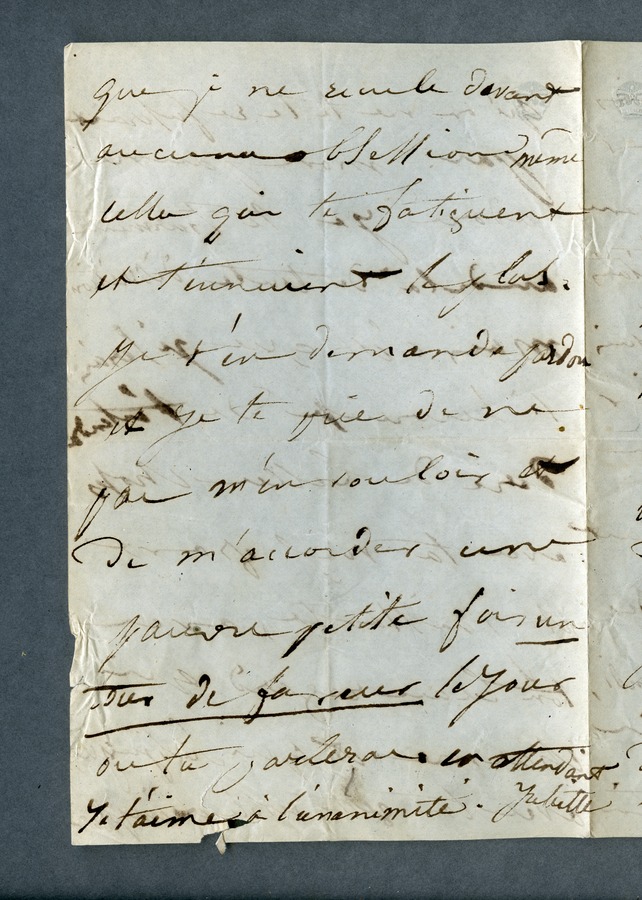 que je ne recule devant
aucune obsession même
celles qui te fatiguent
et t'ennuient le plus.
Je t'en demande pardon
et je te prie de ne
pas m'en vouloir et
de m'accorder une
pauvre petite fois un
tour de faveur le jour
où tu parleras. en attendant
Je t'aime à l'unanimité. Juliette